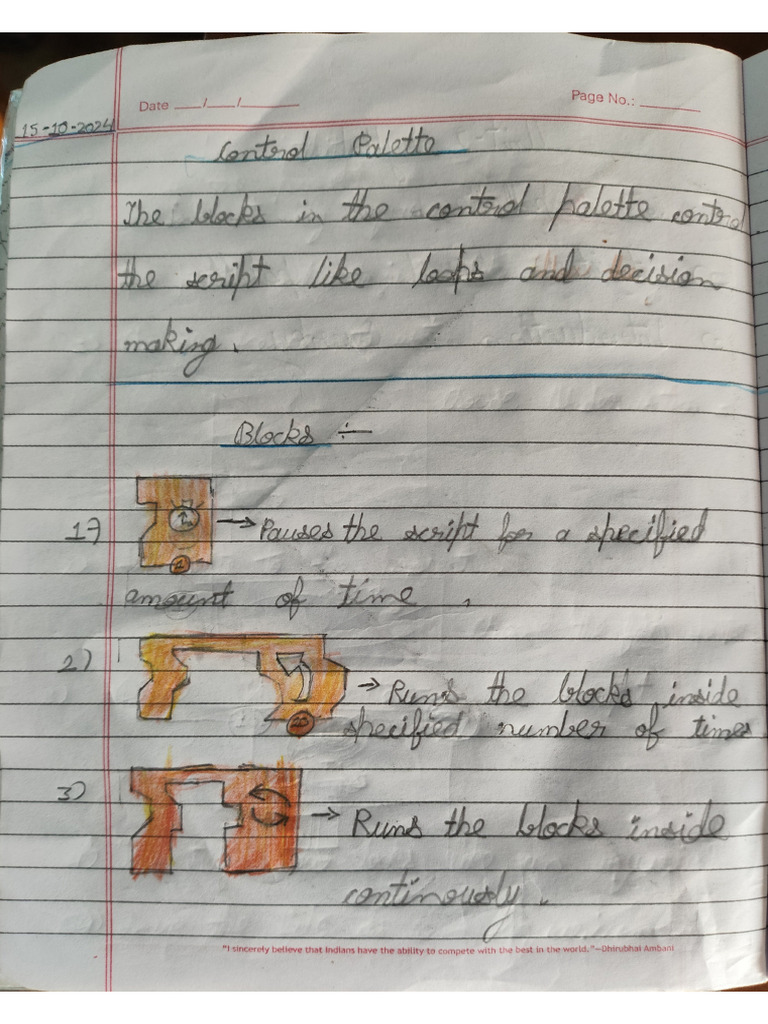 Date ___/___/______
Page No.: ______
15-10-2024
Control Palette
The blocks in the control palette control
the script like loops and decision
making.
Blocks :-
1) → Pauses the script for a specified
amount of time .
2) → Runs the blocks inside
specified number of times
3) → Runs the blocks inside
continously.
"I sincerely believe that Indians have the ability to compete with the best in the world."—Dhirubhai Ambani